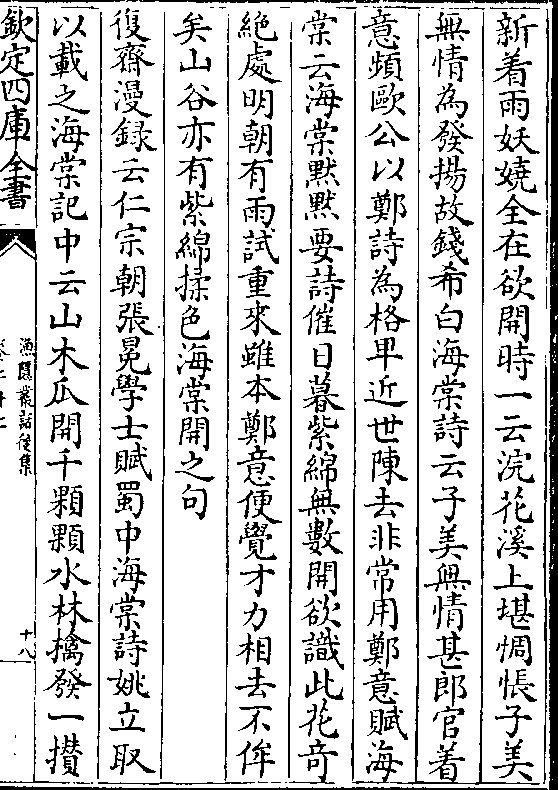 新着雨妖嬈全在欲開時一云浣花溪上堪惆悵子美
無情為發揚故錢希白海棠詩云子美無情甚郎官着
意頻歐公以鄭詩為格卑近世陳去非常用鄭意賦海
棠云海棠黙黙要詩催日暮紫綿無數開欲識此花奇
絶處明朝有雨試重來雖本鄭意便覺才力相去不侔
矣山谷亦有紫綿揉色海棠開之句
復齋漫録云仁宗朝張冕學士賦蜀中海棠詩姚立取
以載之海棠記中云山木瓜開千顆顆水林擒發一攢
欽定四庫全書
漁隱叢話後集
十八